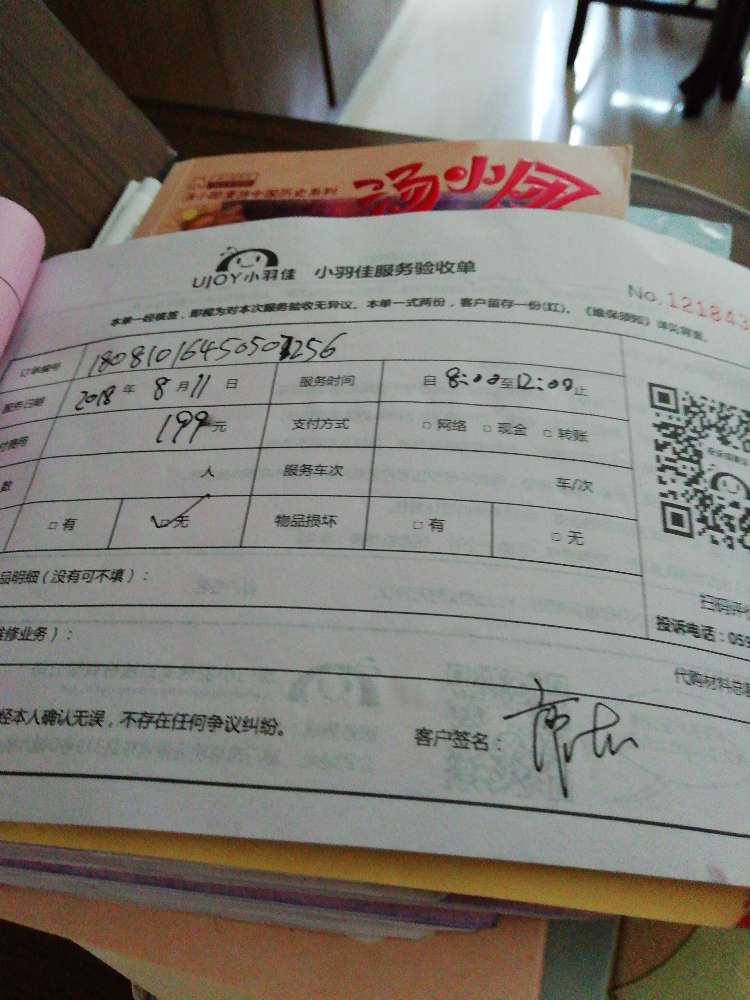 汤小团
汤小团漫游中国历史系列
UJOY小羽佳 小羽佳服务验收单
No.121843
本单一经核签,即视为对本次服务验收无异议。本单一式两份,客户留存一份(红)。《维保须知》详见背面。
订单编号 18081016450507256
服务日期 2018年8月11日 服务时间 自8:00至12:00止
199元 支付方式 □网络 □现金 □转账
数 人 服务车次 车/次
□有 ☑无 物品损坏 □有 □无
品明细(没有可不填):
维修业务):
扫码评价
投诉电话:059
代购材料总
经本人确认无误,不存在任何争议纠纷。 客户签名: